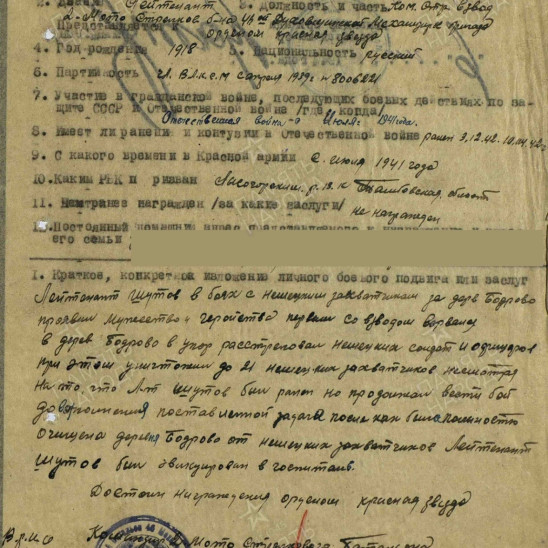 2. Звание Лейтенант 3. Должность и часть Ком. Стр. взвод
2-Мото Стрелков б-на Механизир бригада
Представляется к ордену красная звезда
4. Год рождения 1918 5. Национальность русский
6. Партийность чл. ВЛКСМ с апреля 1939г № 8006221
7. Участие в гражданской войне, последующих боевых действиях по за-
щите СССР и отечественной войне /где, когда/
Отечественная война с июля 1941 года.
8. Имеет ли ранения и контузии в Отечественной войне ранен 3.12.42.
9. С какого времени в Красной армии с июня 1941 года
10. Каким РВК призван Лысогорским р.в.к Тамбовская область
11. Чем ранее награжден /за какие заслуги/ не награжден
12. Постоянный домашний адрес представляемого к
его семьи
I. Краткое, конкретное изложение личного боевого подвига или заслуг
Лейтенант Шутов в боях с немецкими захватчиками за дерв Бодрово
проявил мужество и геройства первым со взводом ворвался
в дерев Бодрово в упор расстреливал немецких солдат и офицеров
при этом уничтожил до 21 немецких захватчиков несмотря
на то, что Л-т Шутов был ранен но продолжал вести бой
до выполнения поставленной задачи после как была полностью
очищена деревня Бодрово от немецких захватчиков Лейтенант
Шутов был эвакуирован в госпиталь.
Достоин награждения орденом красная звезда
Командир Мото Стрелкового Батальона